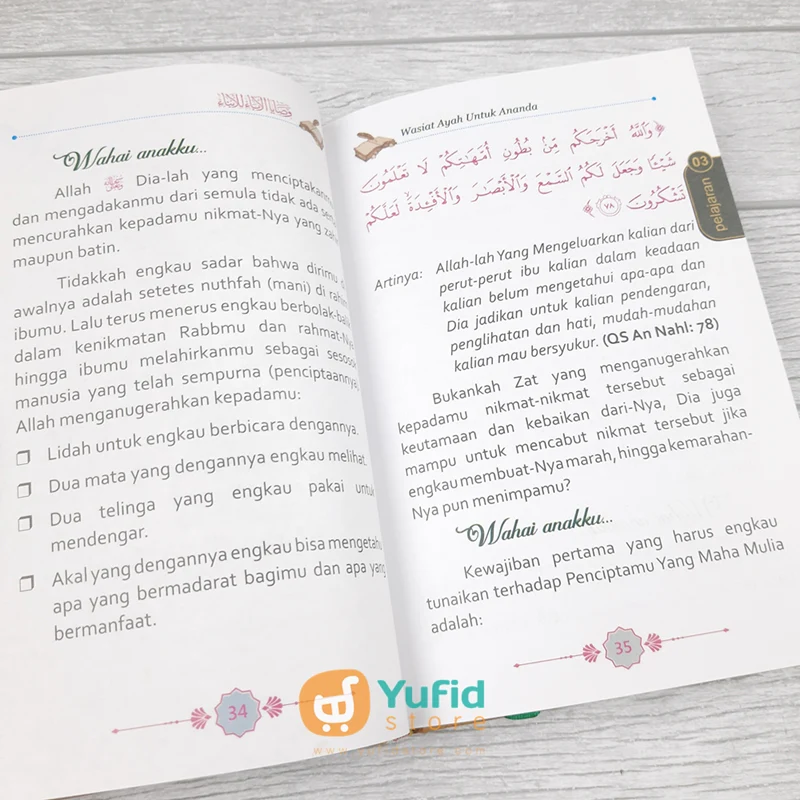 وصايا الآباء للأبناء
Wahai anakku...
Allah Dia-lah yang menciptakanmu
dan mengadakanmu dari semula tidak ada
mencurahkan kepadamu nikmat-Nya yang
maupun batin.
Tidakkah engkau sadar bahwa dirimu
awalnya adalah setetes nuthfah (mani) di rahim
ibumu. Lalu terus menerus engkau berbolak-balik
dalam kenikmatan Rabbmu dan rahmat-Nya
hingga ibumu melahirkanmu sebagai sesosok
manusia yang telah sempurna (penciptaannya
Allah menganugerahkan kepadamu:
❒ Lidah untuk engkau berbicara dengannya.
❒ Dua mata yang dengannya engkau melihat.
❒ Dua telinga yang engkau pakai untuk
mendengar.
❒ Akal yang dengannya engkau bisa mengetahu
apa yang bermadarat bagimu dan apa yang
bermanfaat.
34
Wasiat Ayah Untuk Ananda
﴿ وَاللَّهُ أَخْرَجَكُم مِّنۢ بُطُونِ أُمَّهَٰتِكُمْ لَا تَعْلَمُونَ
شَيْـًٔا وَجَعَلَ لَكُمُ ٱلسَّمْعَ وَٱلْأَبْصَٰرَ وَٱلْأَفْـِٔدَةَ ۙ لَعَلَّكُمْ
تَشْكُرُونَ ٧٨ ﴾
03
pelajaran
Artinya: Allah-lah Yang Mengeluarkan kalian dari
perut-perut ibu kalian dalam keadaan
kalian belum mengetahui apa-apa dan
Dia jadikan untuk kalian pendengaran,
penglihatan dan hati, mudah-mudahan
kalian mau bersyukur. (QS An Nahl: 78)
Bukankah Zat yang menganugerahkan
kepadamu nikmat-nikmat tersebut sebagai
keutamaan dan kebaikan dari-Nya, Dia juga
mampu untuk mencabut nikmat tersebut jika
engkau membuat-Nya marah, hingga kemarahan-
Nya pun menimpamu?
Wahai anakku...
Kewajiban pertama yang harus engkau
tunaikan terhadap Penciptamu Yang Maha Mulia
adalah:
35
Yufid
store